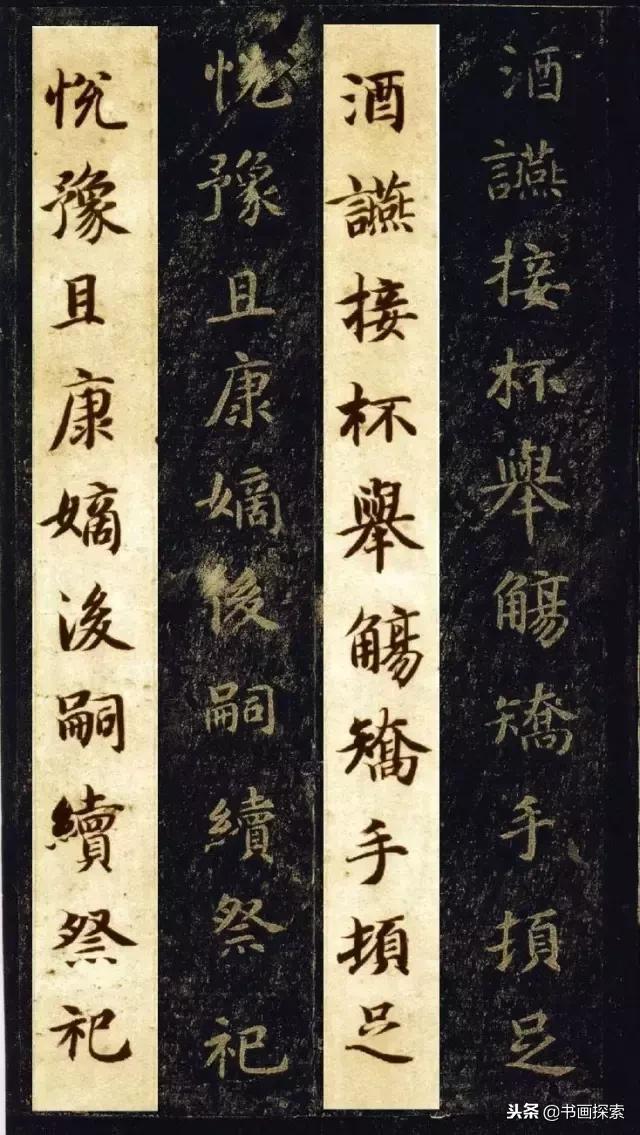 酒讌接杯舉觴矯手頓足
酒讌接杯舉觴矯手頓足
悅豫且康嫡後嗣續祭祀
悅豫且康嫡後嗣續祭祀
头条@书画探索